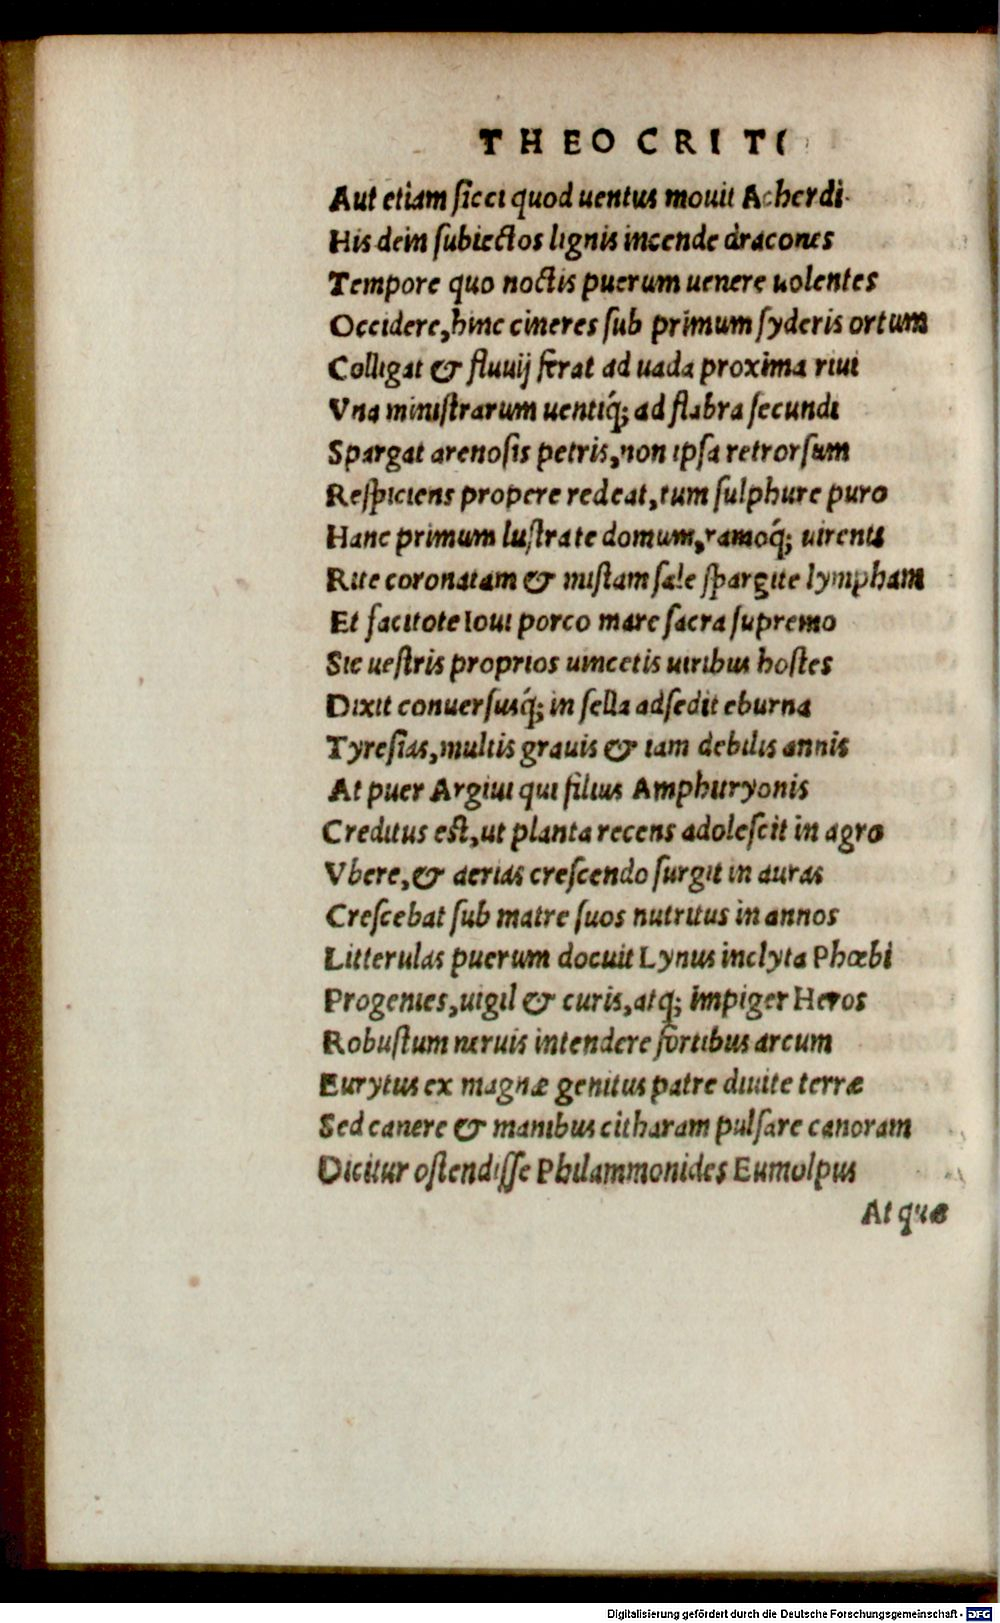 THEOCRITI
Aut etiam ſicci quod uentus mouit Acherdi
His dein ſubiectos lignis incende dracones
Tempore quo noctis puerum uenere uolentes
Occidere, hinc cineres ſub primum ſyderis ortum
Colligat & fluuij ferat ad uada proxima riui
Vna miniſtrarum uentiq́; ad flabra ſecundi
Spargat arenoſis petris, non ipſa retrorſum
Reſpiciens propere redeat, tum ſulphure puro
Hanc primum luſtrate domum, ramoq́; uirenti
Rite coronatam & miſtam ſale ſpargite lympham
Et facitote Ioui porco mare ſacra ſupremo
Sic ueſtris proprios uincetis uiribus hoſtes
Dixit conuerſusq́; in ſella adſedit eburna
Tyreſias, multis grauis & iam debilis annis
At puer Argiui qui filius Amphitryonis
Creditus eſt, ut planta recens adoleſcit in agro
Vbere, & aerias creſcendo ſurgit in auras
Creſcebat ſub matre ſuos nutritus in annos
Litterulas puerum docuit Lynus inclyta Phœbi
Progenies, uigil & curis, atq; impiger Heros
Robuſtum neruis intendere fortibus arcum
Eurytus ex magnæ genitus patre diuite terræ
Sed canere & manibus citharam pulſare canoram
Dicitur oſtendiſſe Philammonides Eumolpus
At quæ
Digitalisierung gefördert durch die Deutsche Forschungsgemeinschaft - DFG